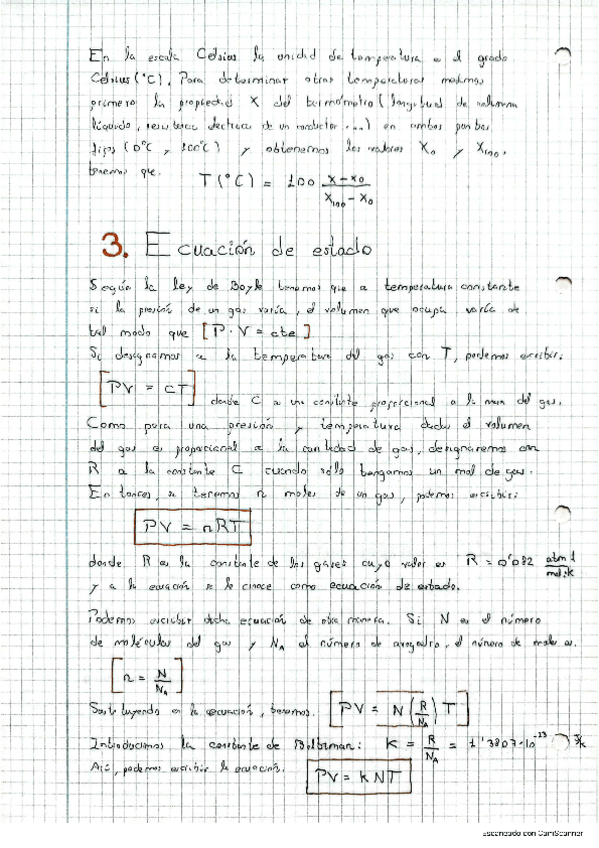 En la escala Celsius la unidad de temperatura es el grado
Celsius (°C). Para determinar otras temperaturas medimos
primero la propiedad X del termómetro (longitud de columna
líquido, resistencia eléctrica de un conductor ...) en ambos puntos
fijos (0°C y 100°C) y obtenemos los valores X₀ y X₁₀₀.
tenemos que. T(°C) = 100 (x - x₀)/(x₁₀₀ - x₀)
3. Ecuación de estado
Según la ley de Boyle tenemos que a temperatura constante
si la presión de un gas varía, el volumen que ocupa varía de
tal modo que [P · V = cte]
Si designamos a la temperatura del gas con T, podemos escribir:
[PV = cT] donde C es una constante proporcional a la masa del gas.
Como para una presión y temperatura dadas el volumen
del gas es proporcional a la cantidad de gas, designaremos con
R a la constante C cuando sólo tengamos un mol de gas.
Entonces, si tenemos n moles de un gas, podemos escribir:
PV = nRT
donde R es la constante de los gases cuyo valor es R = 0'082 atm·l/mol·k
y a la ecuación se le conoce como ecuación de estado.
Podemos escribir dicha ecuación de otra manera. Si N es el número
de moléculas del gas y Nₐ el número de avogadro, el número de moles es.
[n = N/Nₐ]
Sustituyendo en la ecuación, tenemos. [PV = N(R/Nₐ)T]
Introducimos la constante de Boltzman: K = R/Nₐ = 1'3807·10⁻²³ J/k
Así, podemos escribir la ecuación. PV = kNT
Escaneado con CamScanner